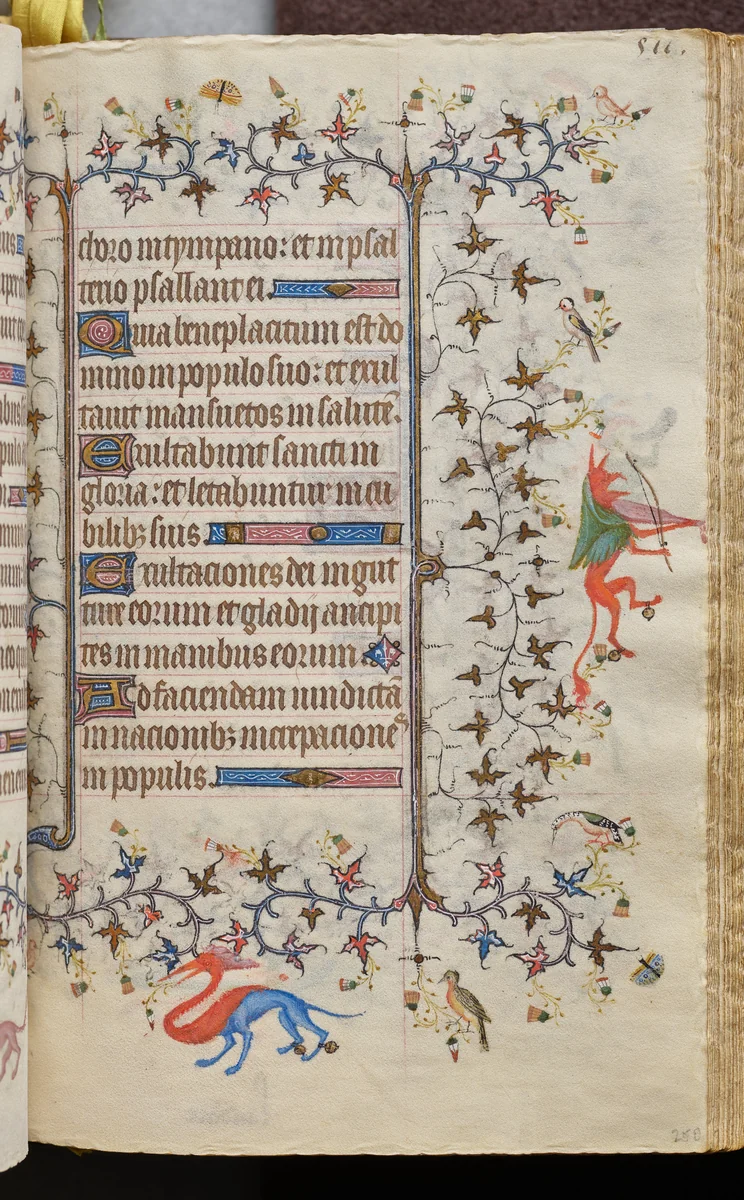 choro in tympano: et in psal
terio psallant ei.
Quia beneplacitum est do
mino in populo suo: et exul
tauit mansuetos in salutē.
Exultabunt sancti in
gloria: et letabuntur in cu
bilibꝫ suis
Exultaciones dei in gut
ture eorum et gladij ancipi
tes in manibus eorum.
Ad faciendam uindictā
in nacionibꝫ increpacione
s
in populis.